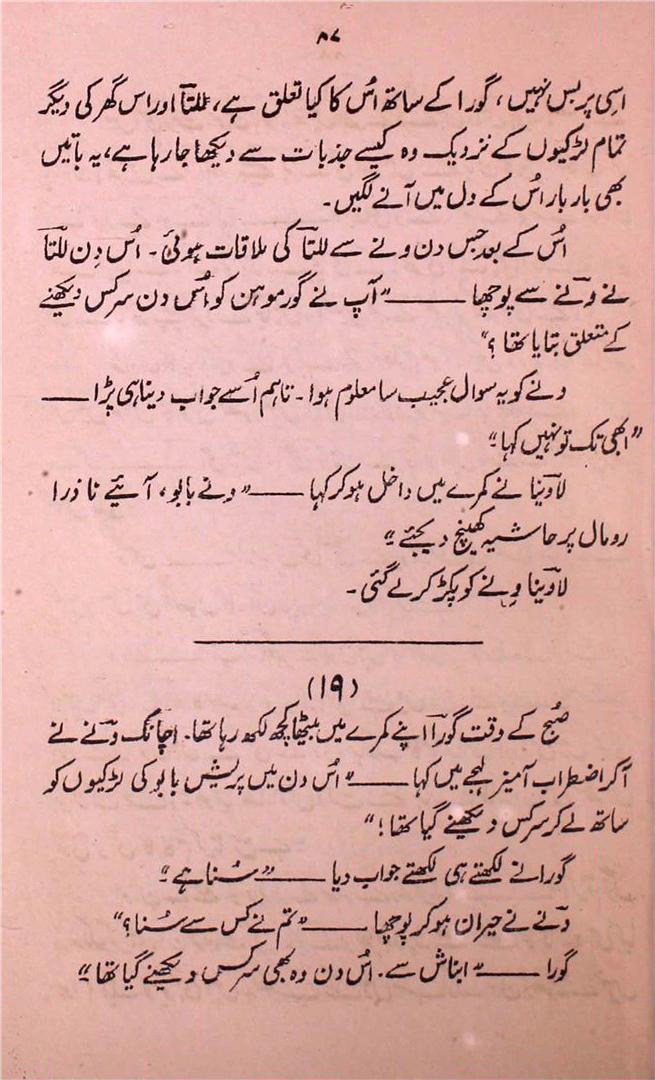 ۸۷
اسی پر بس نہیں، گورا کے ساتھ اُس کا کیا تعلق ہے، للتا اور اس گھر کی دیگر
تمام لڑکیوں کے نزدیک وہ کیسے جذبات سے دیکھا جا رہا ہے، یہ باتیں
بھی بار بار اُس کے دل میں آنے لگیں۔
اُس کے بعد جس دن ونے سے للتا کی ملاقات ہوئی۔ اُس دِن للتا
نے ونے سے پوچھا ——— "آپ نے گورموہن کو اُس دن سرکس دیکھنے
کے متعلق بتایا تھا؟"
ونے کو یہ سوال عجیب سا معلوم ہوا۔ تاہم اُسے جواب دینا ہی پڑا ———
"ابھی تک تو نہیں کہا۔"
لاوینا نے کمرے میں داخل ہو کر کہا ——— "ونے بابو، آئیے نا ذرا
رومال پر حاشیہ کھینچ دیجئے۔"
لاوینا وِنے کو پکڑ کر لے گئی۔
(۱۹)
صُبح کے وقت گورا اپنے کمرے میں بیٹھا کچھ لکھ رہا تھا۔ اچانک ونے نے
آ کر اضطراب آمیز لہجے میں کہا ——— "اُس دن میں پریش بابو کی لڑکیوں کو
ساتھ لے کر سرکس دیکھنے گیا تھا!"
گورا نے لکھتے ہی لکھتے جواب دیا ——— "سُنا ہے۔"
ونے نے حیران ہو کر پوچھا ——— "تم نے کس سے سُنا؟"
گورا ——— "ابناش سے۔ اُس دن وہ بھی سرکس دیکھنے گیا تھا۔"